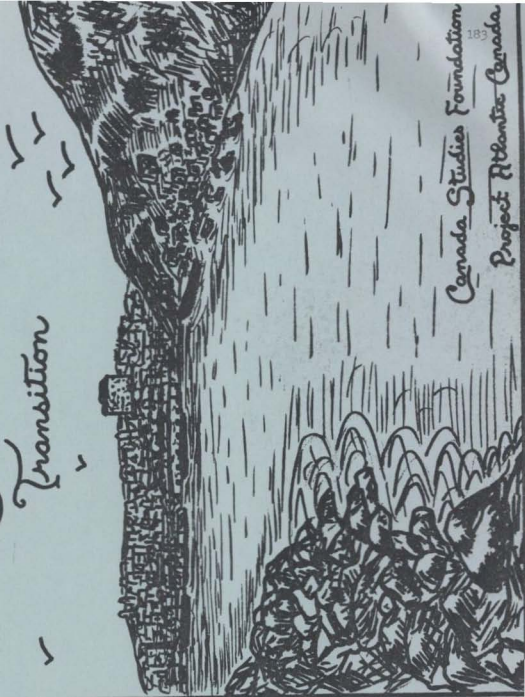 Transition
Canada Studies Foundation
Project Atlantic Canada
183